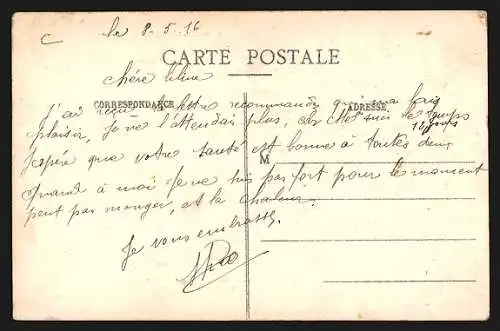 C le 8-5-16
CARTE POSTALE
chère
CORRESPONDANCE ADRESSE
J'ai reçu lettre recommandé qui m'a fais
plaisir, je ne l'attendais plus, le temps
10 jours
J'espére que votre santé est bonne à toutes deux
M
quand à moi je ne suis pas fort pour le moment
peut pas manger, et la chaleur.
Je vous embrasse